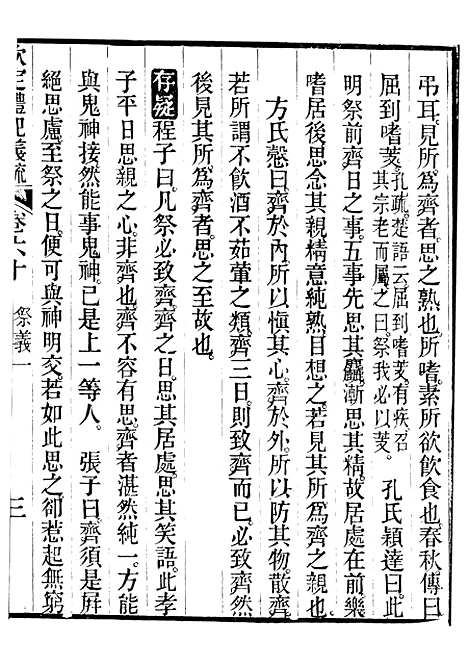 弔耳見所為齊者思之熟也所嗜素所欲飲食也春秋傳曰
屈到嗜芰孔疏楚語云屈到嗜芰有疾召
其宗老而屬之曰祭我必以芰 孔氏穎達曰此
明祭前齊日之事五事先思其麤漸思其精故居處在前樂
嗜居後思念其親精意純熟目想之若見其所為齊者也
方氏慤曰齊於內所以愼其心齊於外所以防其物散齊
若所謂不飲酒不茹葷之類齊三日則致齊而已必致齊然
後見其所為齊者思之至故也
存疑程子曰凡祭必致齊齊之日思其居處思其笑語此孝
子平日思親之心非齊也齊不容有思齊者湛然純一方能
與鬼神接然能事鬼神已是上一等人 張子曰齊須是屛
絕思慮至祭之日便可與神明交若如此思之卻惹起無窮
欽定禮記義疏 卷六十 祭義一 三